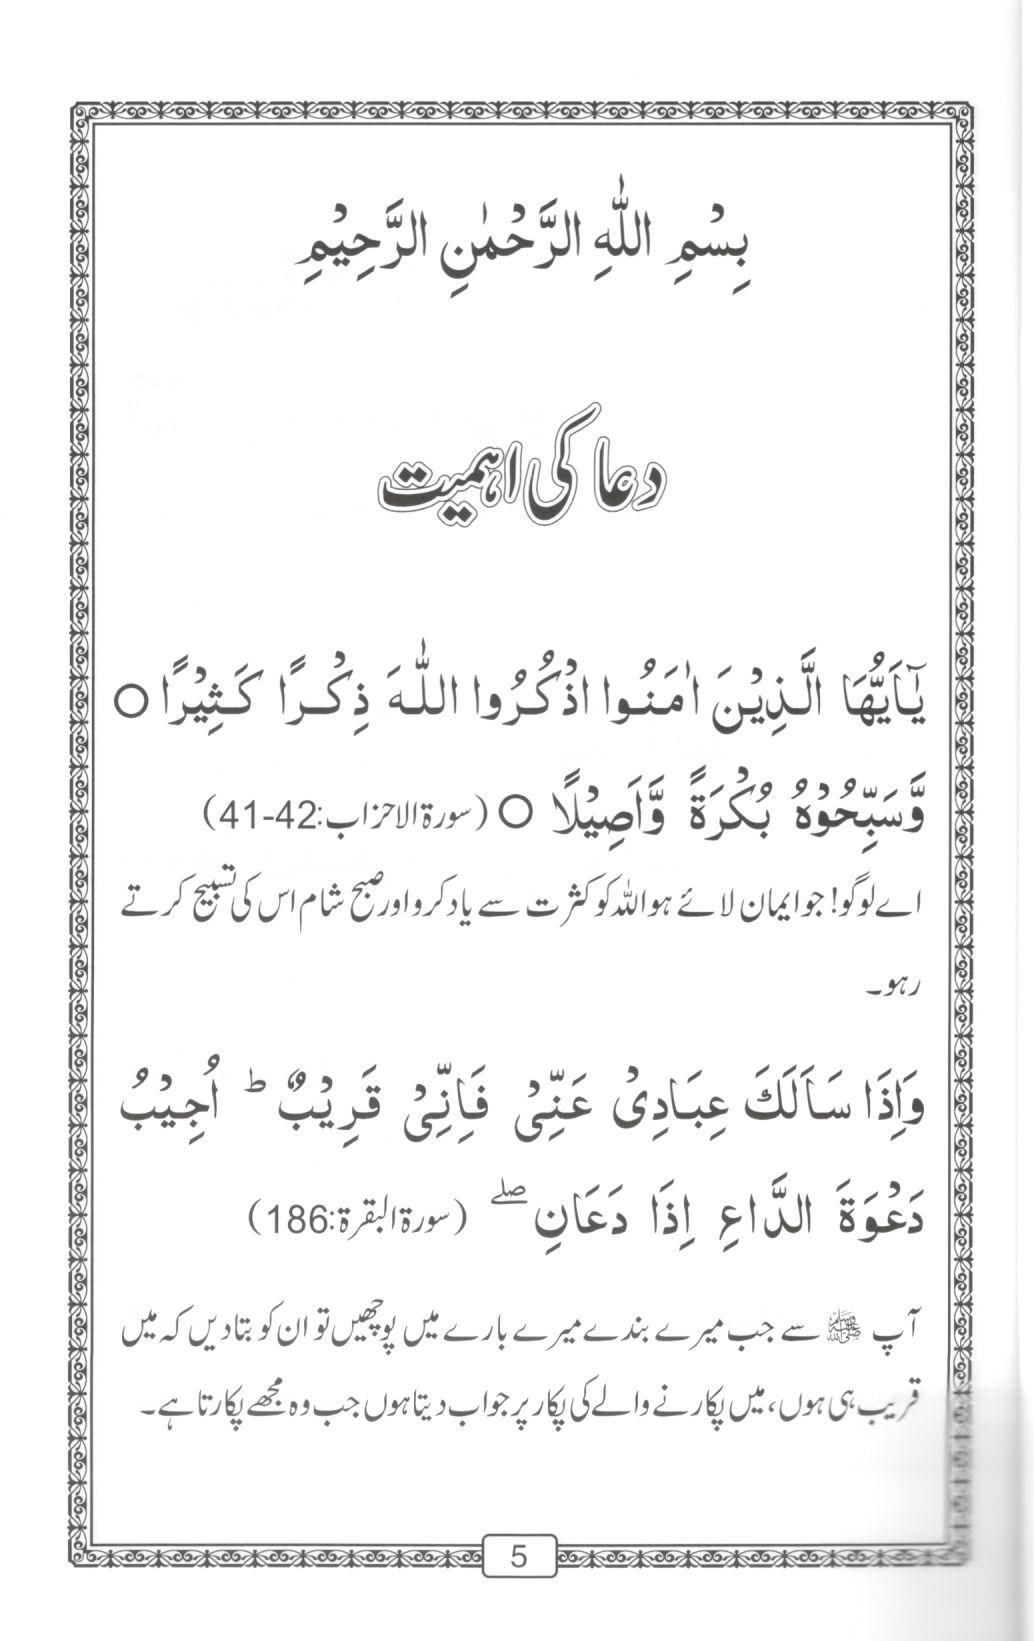 بِسْمِ اللّٰهِ الرَّحْمٰنِ الرَّحِيْمِ
دعا کی اہمیت
يٰۤاَيُّهَا الَّذِيْنَ اٰمَنُوا اذْكُرُوا اللّٰهَ ذِكْرًا كَثِيْرًا ○
وَّسَبِّحُوْهُ بُكْرَةً وَّاَصِيْلًا ○ (سورۃ الاحزاب:42-41)
اے لوگو! جو ایمان لائے ہو اللہ کو کثرت سے یاد کرو اور صبح شام اس کی تسبیح کرتے
رہو۔
وَاِذَا سَاَلَكَ عِبَادِىْ عَنِّىْ فَاِنِّىْ قَرِيْبٌ ؕ اُجِيْبُ
دَعْوَةَ الدَّاعِ اِذَا دَعَانِ ۖ (سورۃ البقرۃ:186)
آپ ﷺ سے جب میرے بندے میرے بارے میں پوچھیں تو ان کو بتا دیں کہ میں
قریب ہی ہوں، میں پکارنے والے کی پکار پر جواب دیتا ہوں جب وہ مجھے پکارتا ہے۔
5